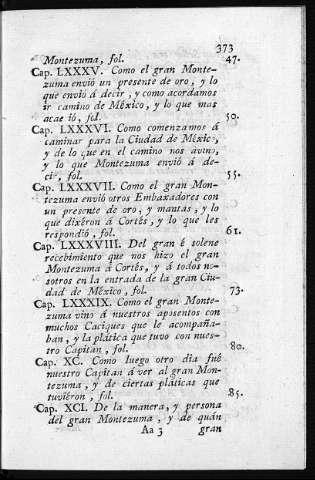 373
Montezuma, fol. 47.
Cap. LXXXV. Como el gran Monte-
zuma envió un presente de oro, y lo
que envió á decir, y como acordamos
ir camino de México, y lo que mas
acae ió, fol. 50.
Cap. LXXXVI. Como comenzamos á
caminar para la Ciudad de México,
y de lo que en el camino nos avino,
y lo que Montezuma envió á de-
cir, fol. 55.
Cap. LXXXVII. Como el gran Mon-
tezuma envió otros Embaxadores con
un presente de oro, y mantas, y lo
que dixéron á Cortés, y lo que les
respondió, fol. 61.
Cap. LXXXVIII. Del gran é solene
recebimiento que nos hizo el gran
Montezuma á Cortés, y á todos no-
sotros en la entrada de la gran Ciu-
dad de México, fol. 73.
Cap. LXXXIX. Como el gran Monte-
zuma vino á nuestros aposentos con
muchos Caciques que le acompaña-
ban, y la plática que tuvo con nues-
tro Capitan, fol. 80.
Cap. XC. Como luego otro dia fué
nuestro Capitan á ver al gran Mon-
tezuma, y de ciertas pláticas que
tuviéron, fol. 85.
Cap. XCI. De la manera, y persona
del gran Montezuma, y de quán
Aa 3 gran